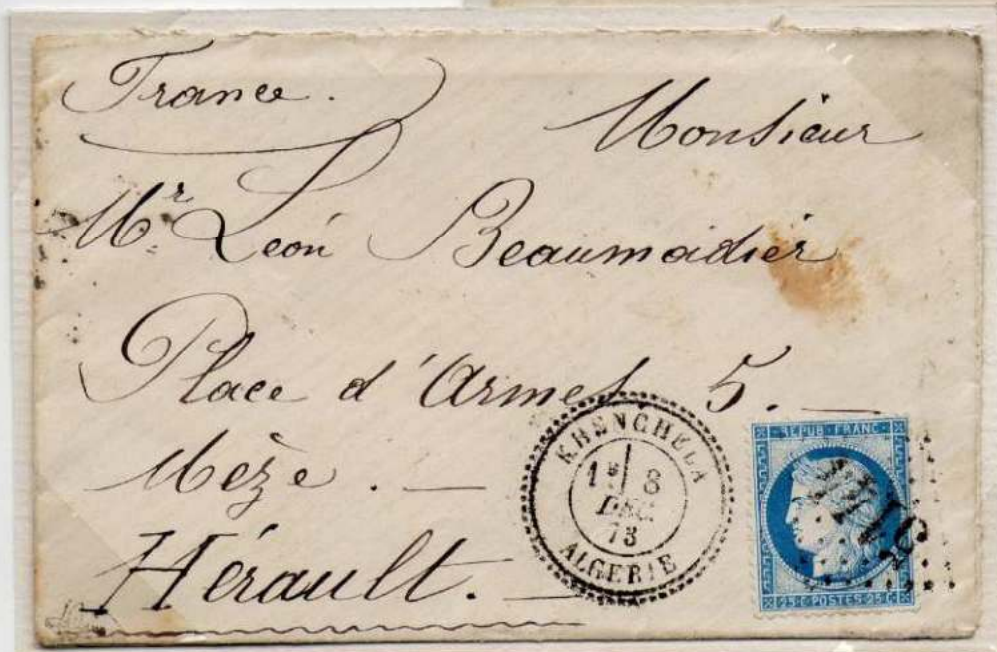 France.
Monsieur
Mr Léon Beaumadier
Place d'Armes 5. —
Mèze. —
Hérault. —
KHENCHELA
1E 8
DEC.
73
ALGERIE
REPUB·FRANC·
25·C·POSTES·25·C·